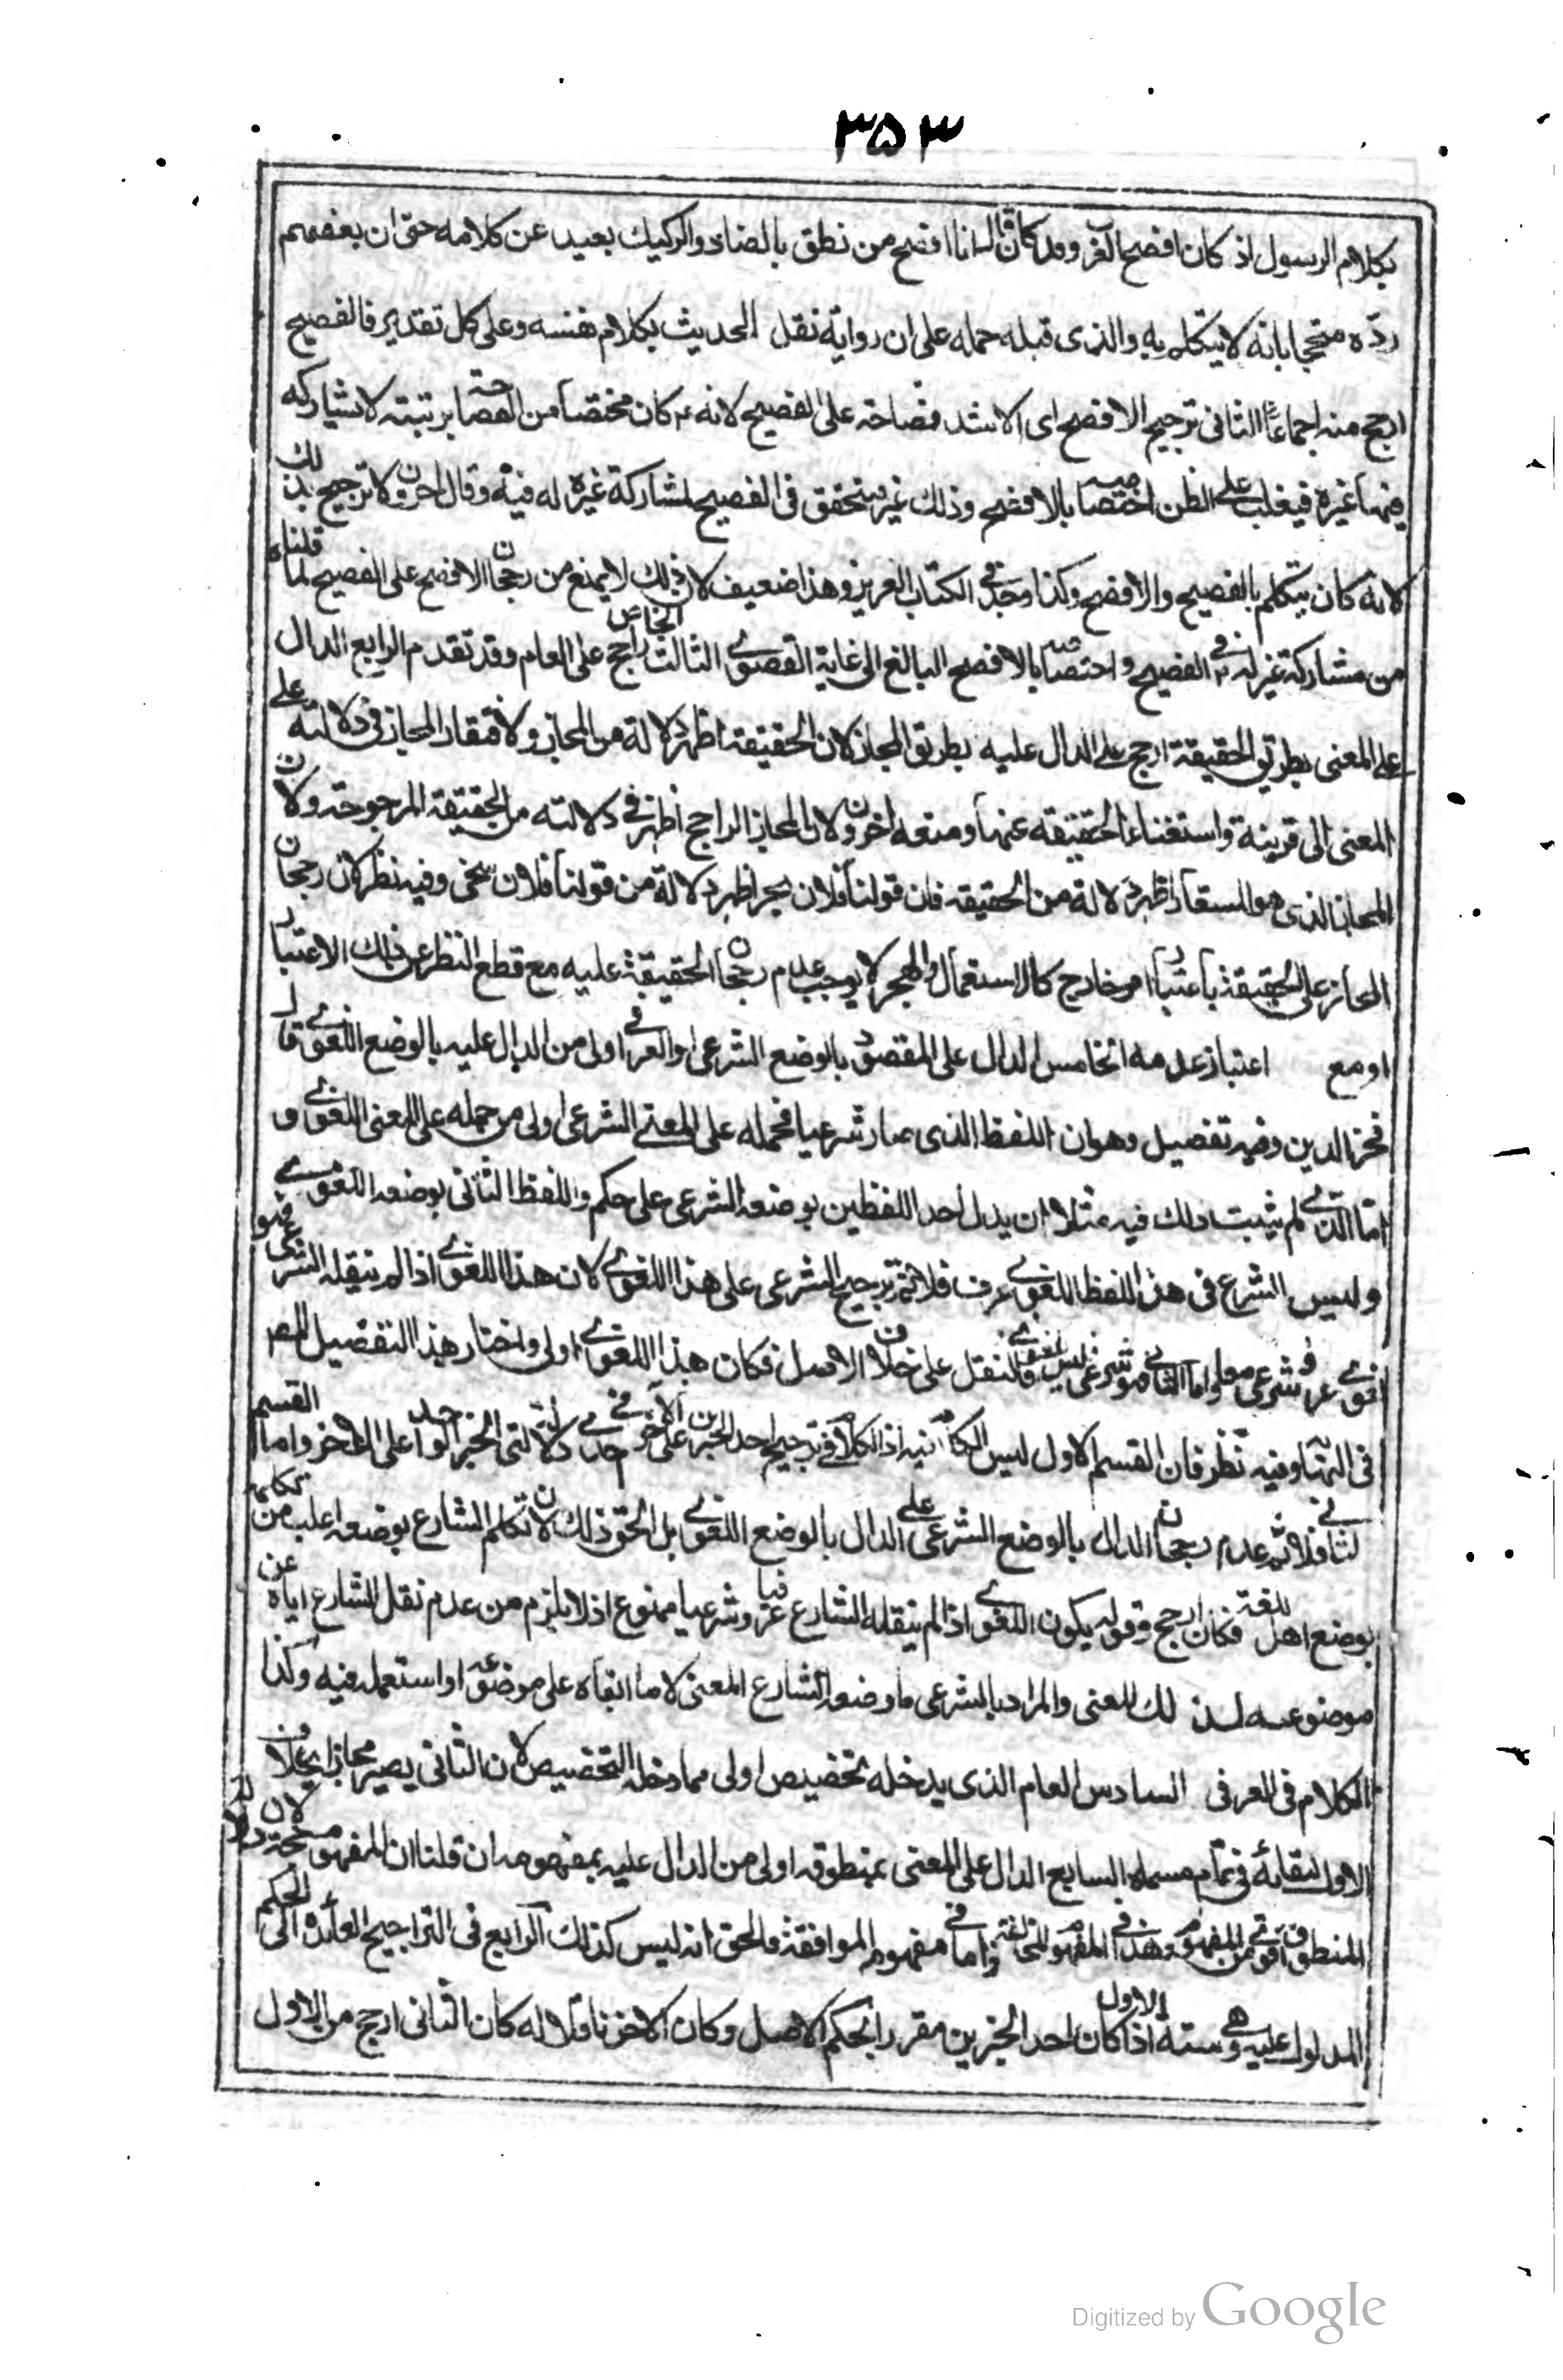 ٣٥٣
بكلام الرسول اذ كان افصح العرب وقد كان قال انا افصح من نطق بالضاد والركيك بعيد عن كلامه حتى ان بعضهم
ردّه محتجا بانه لا يتكلم به والذى قبله حمله على ان روايه نقل الحديث بكلام نفسه وعلى كل تقدير فالفصيح
ارجح منه اجماعًا الثانى ترجيح الافصح اى الاشد فصاحة على الفصيح لانه ع كان مختصا من الفصاحة برتبته لا يشاركه
فيها غيره فيغلب على الظن اختصاصه بالافصح وذلك غير متحقق فى الفصيح لمشاركة غيره له فيه وقال اخرون لا ترجيح بذلك
لانه كان يتكلم بالفصيح والافصح وكذا وجد فى الكتاب العزيز وهذا ضعيف لان ذلك لا يمنع من رجحان الافصح على الفصيح لما قلناه
من مشاركة غيره له ع فى الفصيح واختصاصه بالافصح البالغ الى غاية القصوى الثالث الخاص راجح على العام وقد تقدم الرابع الدال
على المعنى بطريق الحقيقة ارجح على الدال عليه بطريق المجاز لان الحقيقة اظهر دلالة من المجاز ولافتقار المجاز فى دلالته على
المعنى الى قرينة واستغناء الحقيقه عنها ومنعه اخرون لان المجاز الراجح اظهر فى دلالته من الحقيقة المرجوحة ولان
المجاز الذى هو المستعار اظهر دلالة من الحقيقه فان قولنا فلان بحر اظهر دلالة من قولنا فلان سخى وفيه نظر لان رجحان
المجاز على الحقيقة باعتبار امر خارج كالاستعمال والهجر لا يوجب عدم رجحان الحقيقة عليه مع قطع النظر عن ذلك الاعتبار
او مع اعتبار عدمه الخامس الدال على المقصود بالوضع الشرعى او العرفى اولى من الدال عليه بالوضع اللغوى قال
فخر الدين وفيه تفصيل وهو ان اللفظ الذى صار شرعيا فحمله على المعنى الشرعى اولى من حمله على المعنى اللغوى و
امّا الذى لم يثبت ذلك فيه مثلا ان يدل احد اللفظين بوضعه الشرعى على حكم واللفظ الثانى بوضعه اللغوى
وليس الشرع فى هذا اللفظ اللغوى عرف فلا ثم ترجيح الشرعى على هذا اللغوى لان هذا اللغوى اذا لم ينقله الشرعى فهو
لغوى عرفى شرعى معا واما الثانى فهو شرعى ليس بلغوى فالنقل على خلاف الاصل فكان هذا اللغوى اولى واختار هذا التفصيل المصـ
فى النهاية وفيه نظر فان القسم الاول ليس الكلام فيه اذ الكلام فى ترجيح احد الخبرين على الاخر لا فى دلالتى الخبر الواحد على الاخر واما القسم
الثانى فلا ثم عدم رجحان الدال بالوضع الشرعى على الدال بالوضع اللغوى بل الحق ذلك لان تكلم الشارع بوضعه اغلب من تكلمه
بوضع اهل اللغة فكان ارجح وقوله يكون اللغوى اذا لم ينقله الشارع عرفيا وشرعيا ممنوع اذ لا يلزم من عدم نقل الشارع اياه عن
موضوعه لذلك المعنى والمراد بالشرعى ما وضعه الشارع المعنى لا ما ابقاه على موضوعه او استعمله فيه وكذا
الكلام فى العرفى السادس العام الذى يدخله تخصيص اولى مما دخله التخصيص لان الثانى يصير مجازا بخلاف
الاول لبقائه فى تمام مسماه السابع الدال على المعنى بمنطوقه اولى من الدال عليه بمفهومه ان قلنا ان المفهوم حجة لان دلالة
المنطوق اقوى من المفهوم وهذا فى المفهوم المخالفة واما فى مفهوم الموافقة فالحق انه ليس كذلك الرابع فى التراجيح العائدة الى الحكم
المدلول عليه وهى ستة الاول اذا كان احد الخبرين مقررا لحكم الاصل وكان الاخر ناقلا له كان الثانى ارجح من الاول
Digitized by Google